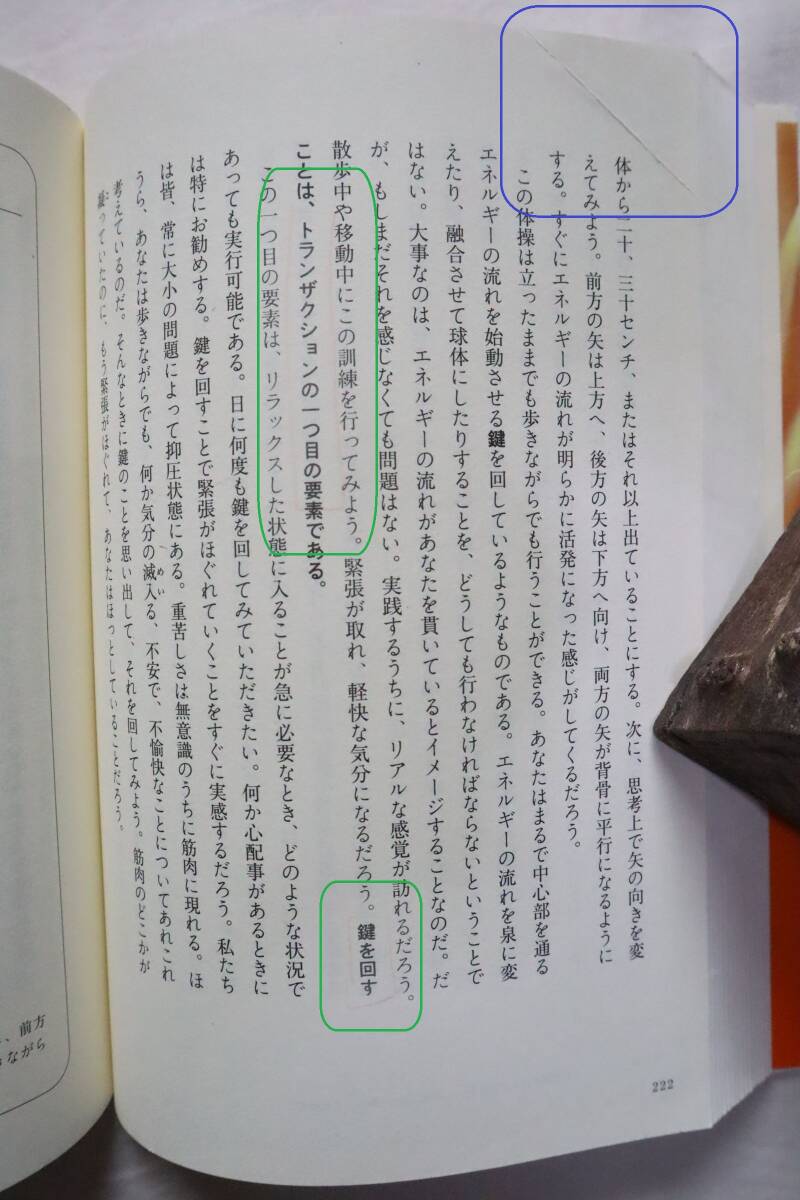 体から二十、三十センチ、またはそれ以上出ていることにする。次に、思考上で矢の向きを変
えてみよう。前方の矢は上方へ、後方の矢は下方へ向け、両方の矢が背骨に平行になるように
する。すぐにエネルギーの流れが明らかに活発になった感じがしてくるだろう。
この体操は立ったままでも歩きながらでも行うことができる。あなたはまるで中心部を通る
エネルギーの流れを始動させる鍵を回しているようなものである。エネルギーの流れを泉に変
えたり、融合させて球体にしたりすることを、どうしても行わなければならないということで
はない。大事なのは、エネルギーの流れがあなたを貫いているとイメージすることなのだ。だ
が、もしまだそれを感じなくても問題はない。実践するうちに、リアルな感覚が訪れるだろう。
散歩中や移動中にこの訓練を行ってみよう。緊張が取れ、軽快な気分になるだろう。鍵を回す
ことは、トランザクションの一つ目の要素である。
この一つ目の要素は、リラックスした状態に入ることが急に必要なとき、どのような状況で
あっても実行可能である。日に何度も鍵を回してみていただきたい。何か心配事があるときに
は特にお勧めする。鍵を回すことで緊張がほぐれていくことをすぐに実感するだろう。私たち
は皆、常に大小の問題によって抑圧状態にある。重苦しさは無意識のうちに筋肉に現れる。ほ
うら、あなたは歩きながらでも、何か気分の滅入る、不安で、不愉快なことについてあれこれ
めい
考えているのだ。そんなときに鍵のことを思い出して、それを回してみよう。筋肉のどこかが
凝っていたのに、もう緊張がほぐれて、あなたはほっとしていることだろう。
222
、前方
ながら